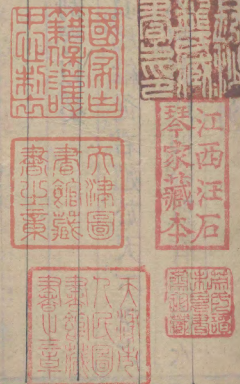 江西汪石
琴家藏本
國家古
籍保護
中心制
天津圖
書館藏
書之章
天津市
人民圖
書館藏
書之章